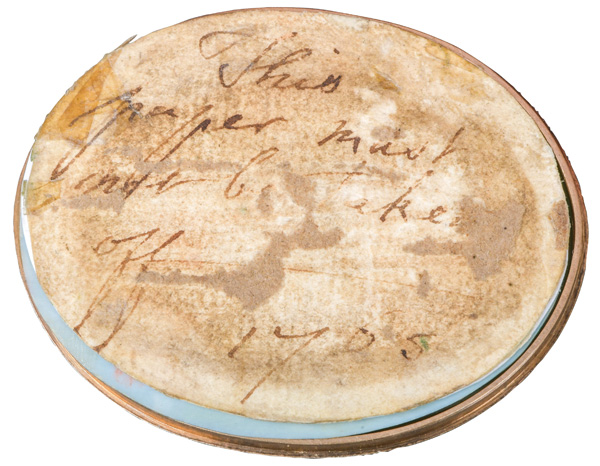 This
paper must
not be take
off
1705